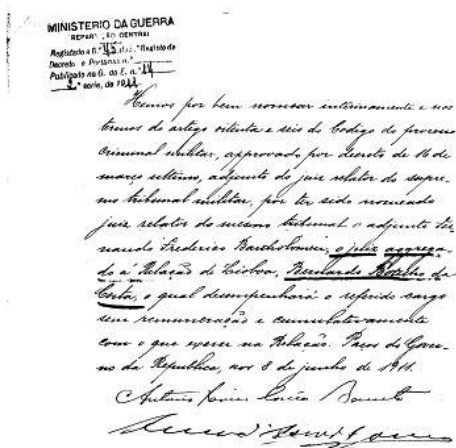 MINISTERIO DA GUERRA
REPARTIÇÃO CENTRAL
Registado a fl. 45 do Registo de
Decretos e Portarias n.º
Publicado na O. do E. n.º 14
2.ª serie, de 1911
Hemos por bem nomear interinamente e nos
termos do artigo oitenta e seis do Codigo do processo
criminal militar, approvado por decreto de 16 de
março ultimo, adjunto do juiz relator do supre-
mo tribunal militar, por ter sido nomeado
juiz relator do mesmo tribunal o adjunto Fer-
nando Frederico Bartholomeu, o juiz aggrega-
do á Relação de Lisboa, Bernardo Botelho da
Costa, o qual desempenhará o referido cargo
sem remuneração e cumulativamente
com o que exerce na Relação. Paços do Gover-
no da Republica, aos 8 de junho de 1911.
Antonio Xavier Correia Barreto